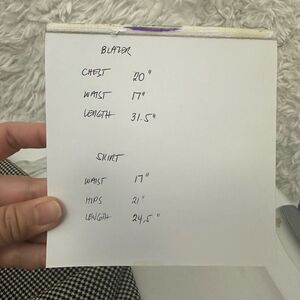 BLAZER
CHEST 20"
WAIST 17"
LENGTH 31.5"
SKIRT
WAIST 17"
HIPS 21"
LENGTH 24,5"